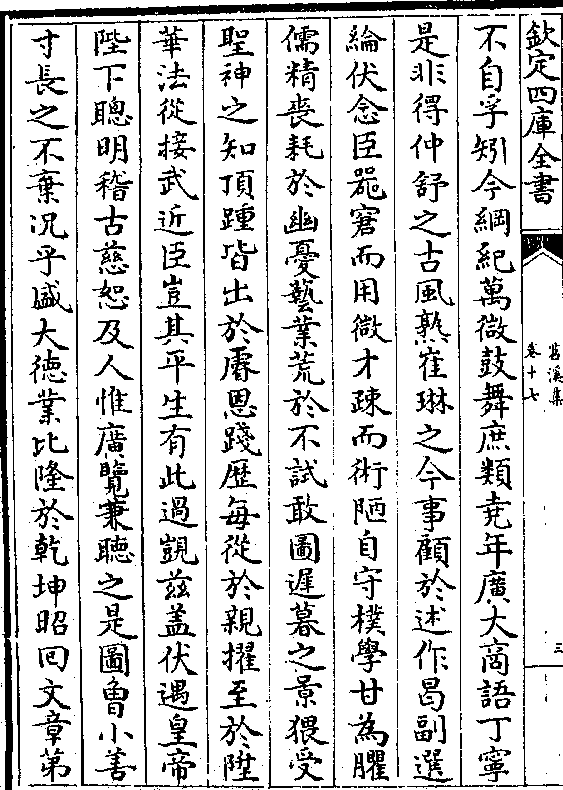 欽定四庫全書
苕溪集
卷十七
三
不自孚矧今綱紀萬微鼓舞庶類堯年廣大商語丁寧
是非得仲舒之古風熟崔琳之今事顧於述作曷副選
綸伏念臣器窘而用微才疎而術陋自守樸學甘為臞
儒精喪耗於幽憂藝業荒於不試敢圖遲暮之景猥受
聖神之知頂踵皆出於廕恩踐歴每從於親擢至於陞
華法從接武近臣豈其平生有此過覬兹盖伏遇皇帝
陛下聰明稽古慈恕及人惟廣覽兼聽之是圖曽小善
寸長之不棄况乎盛大徳業比隆於乾坤昭回文章第